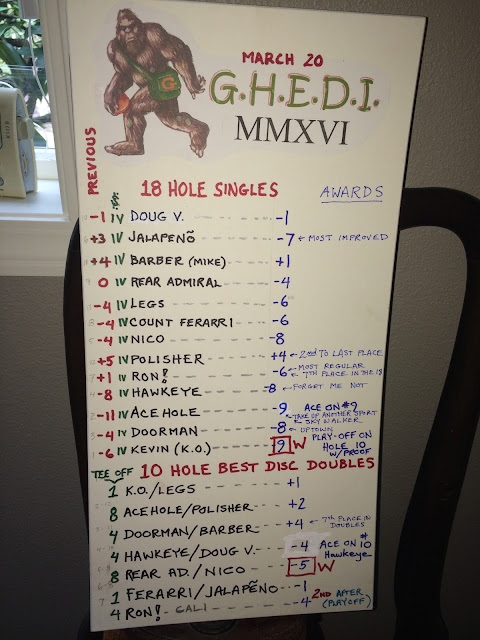 MARCH 20
G.H.E.D.I.
MMXVI
PREVIOUS
$
18 HOLE SINGLES AWARDS
-1 IV DOUG V. -1
+3 IV JALAPEÑO -7 ← MOST IMPROVED
+4 IV BARBER (MIKE) +1
0 IV REAR ADMIRAL -4
-4 IV LEGS -6
-4 IV COUNT FERARRI -6
-4 IV NICO -8
+5 IV POLISHER +4 ← 2ND TO LAST PLACE
+1 IV RON! -6 ← MOST REGULAR
← 7TH PLACE IN THE 18
-8 IV HAWKEYE -8 ← FORGET ME NOT
-11 IV ACE HOLE -9 ACE ON #9
← TAKE UP ANOTHER SPORT
← SKY WALKER
-4 IV DOORMAN -8 ← UPTOWN
-6 IV KEVIN (K.O.) 9 W PLAY-OFF ON
HOLE 10
W/PROOF
TEE OFF 10 HOLE BEST DISC DOUBLES
1 K.O./LEGS +1
8 ACEHOLE/POLISHER +2
4 DOORMAN/BARBER +4 ← 7TH PLACE IN
DOUBLES
4 HAWKEYE/DOUG V. -4 ACE ON #10
Hawkeye
8 REAR AD./NICO -5 W
1 FERARRI/JALAPEÑO -1 2ND AFTER
(PLAYOFF)
4 RON! CALI -4
G